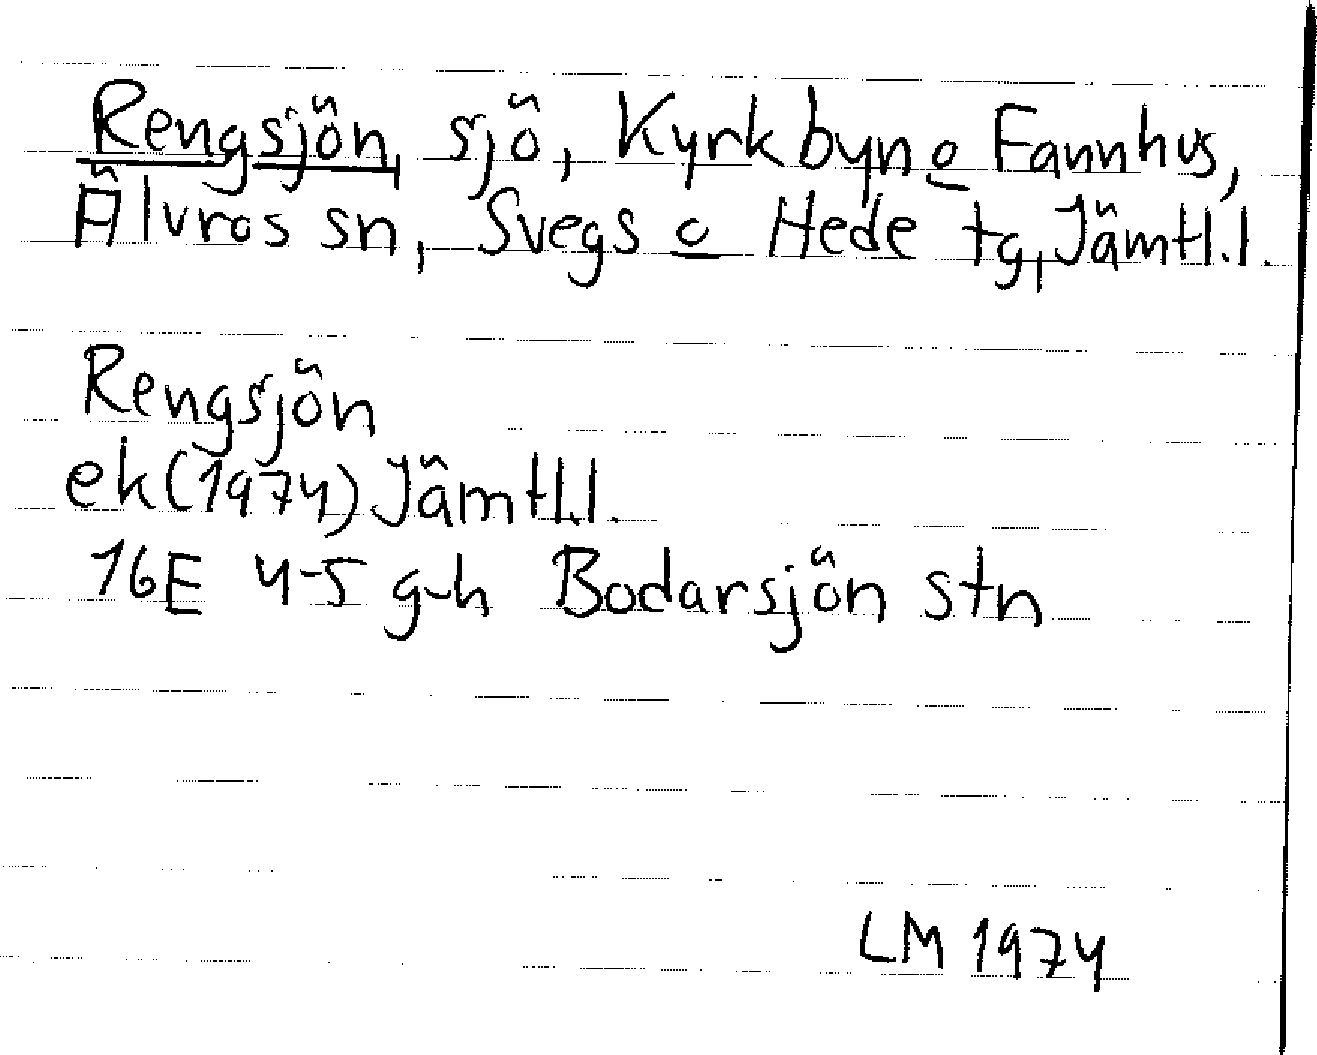 Rengsjön, sjö, Kyrkbyn o Fannhus,
Älvros sn, Svegs o Hede tg, Jämtl.l.
Rengsjön
ek (1974) Jämtl.l.
16E 4-5 g-h Bodarsjön stn
LM 1974